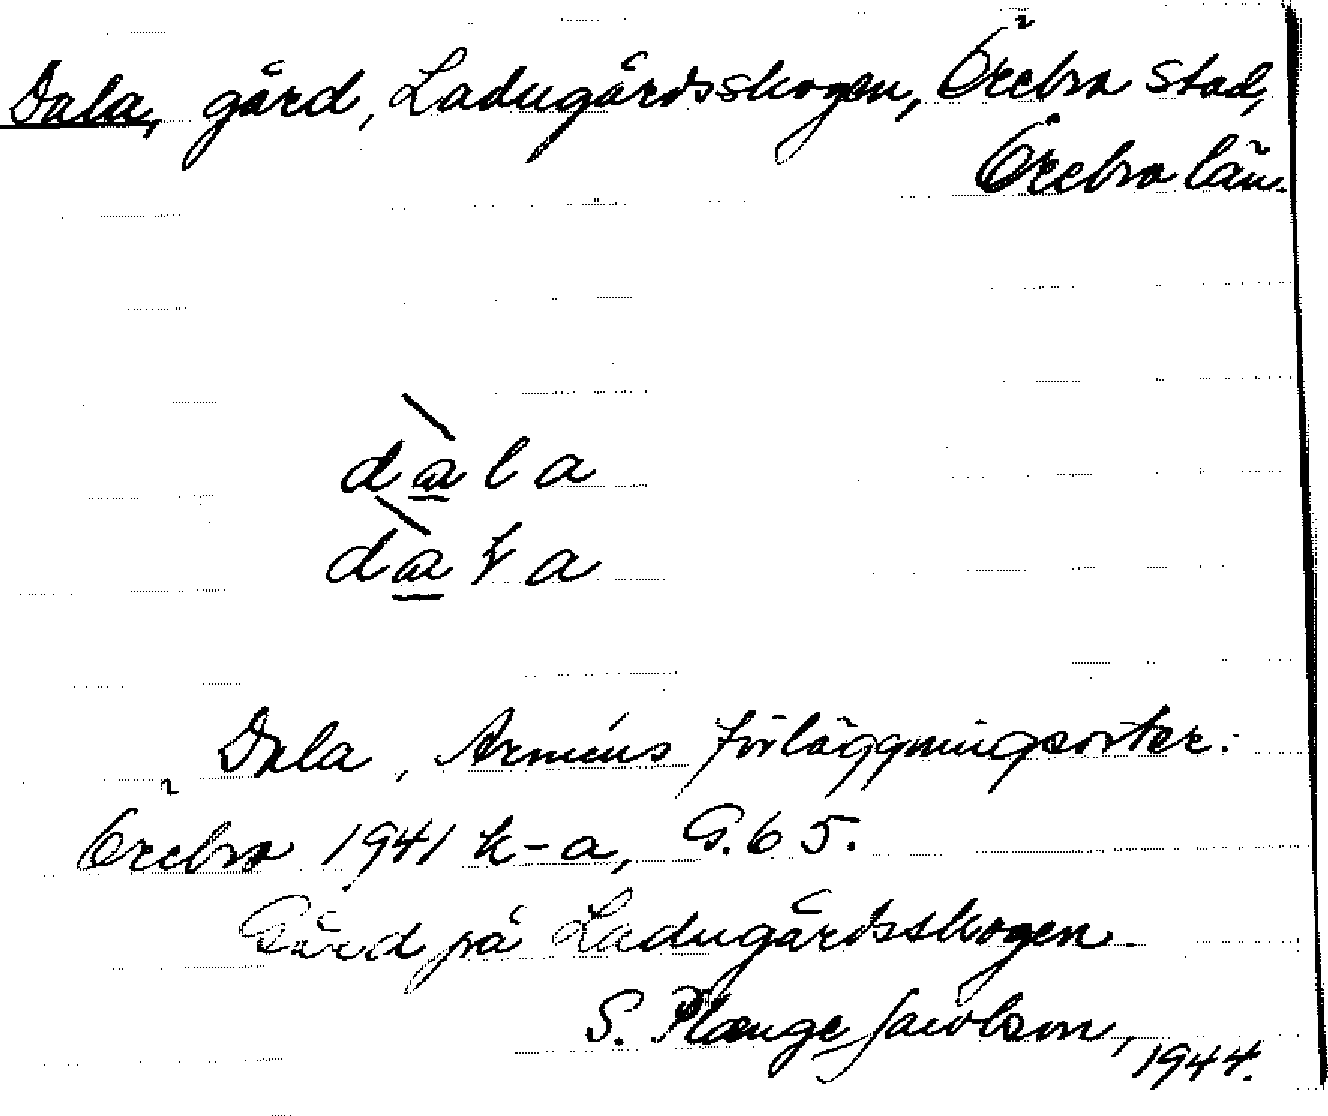 Dala, gård, Ladugårdsskogen, Örebro stad,
Örebro län.
dàla
dàła
Dala, Arméns förläggningsorter.
Örebro 1941 k-a, G.65.
Gård på Ladugårdsskogen
S. Plænge Jacobson,
1944.